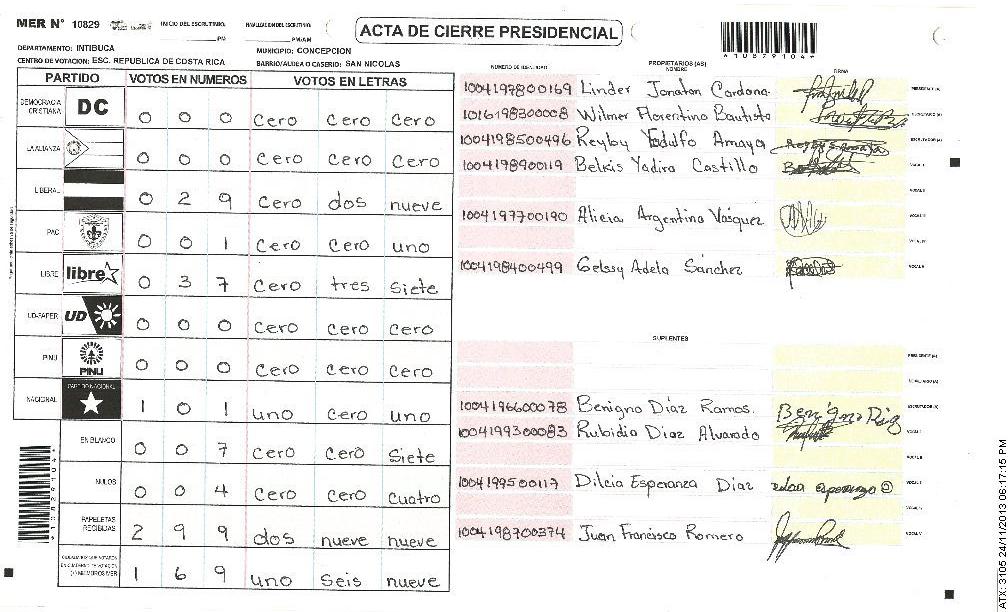 MER N° 10829
INICIO DEL ESCRUTINIO: PM
FINALIZACION DEL ESCRUTINIO: PM/AM
ACTA DE CIERRE PRESIDENCIAL
*10829104*
DEPARTAMENTO: INTIBUCA
MUNICIPIO: CONCEPCION
CENTRO DE VOTACION: ESC. REPUBLICA DE COSTA RICA
BARRIO/ALDEA O CASERIO: SAN NICOLAS
PARTIDO VOTOS EN NUMEROS VOTOS EN LETRAS
DEMOCRACIA CRISTIANA DC 0 0 0 Cero Cero Cero
LA ALIANZA 0 0 0 Cero Cero Cero
LIBERAL 0 2 9 Cero dos nueve
PAC 0 0 1 Cero Cero uno
LIBRE libre 0 3 7 Cero tres Siete
UD-FAPER UD 0 0 0 Cero Cero Cero
PINU PINU 0 0 0 Cero Cero Cero
NACIONAL PARTIDO NACIONAL 1 0 1 uno Cero uno
EN BLANCO 0 0 7 Cero Cero Siete
NULOS 0 0 4 Cero Cero Cuatro
PAPELETAS RECIBIDAS 2 9 9 dos nueve nueve
1 6 9 uno Seis nueve
*10829104*
NUMERO DE IDENTIDAD PROPIETARIOS (AS) NOMBRE FIRMA
1004197800169 Linder Jonatan Cardona PRESIDENTE (A)
1016198300008 Wilmer Florentino Bautista SECRETARIO (A)
1004198500496 Reyby Yodulfo Amaya ESCRUTADOR (A)
1004198900119 Belkis Yadira Castillo VOCAL I
VOCAL II
1004197700190 Alicia Argentina Vásquez VOCAL III
VOCAL IV
1004198400499 Gelssy Adela Sánchez VOCAL V
SUPLENTES
PRESIDENTE (A)
SECRETARIO (A)
1004196600078 Benigno Díaz Ramos Benigno Diaz ESCRUTADOR (A)
1004199300083 Rubidia Diaz Alvarado VOCAL I
VOCAL II
1004199500117 Dilcia Esperanza Diaz
1004198700374 Juan Francisco Romero VOCAL V
ATX: 3105 24/11/2013 06:17:15 PM